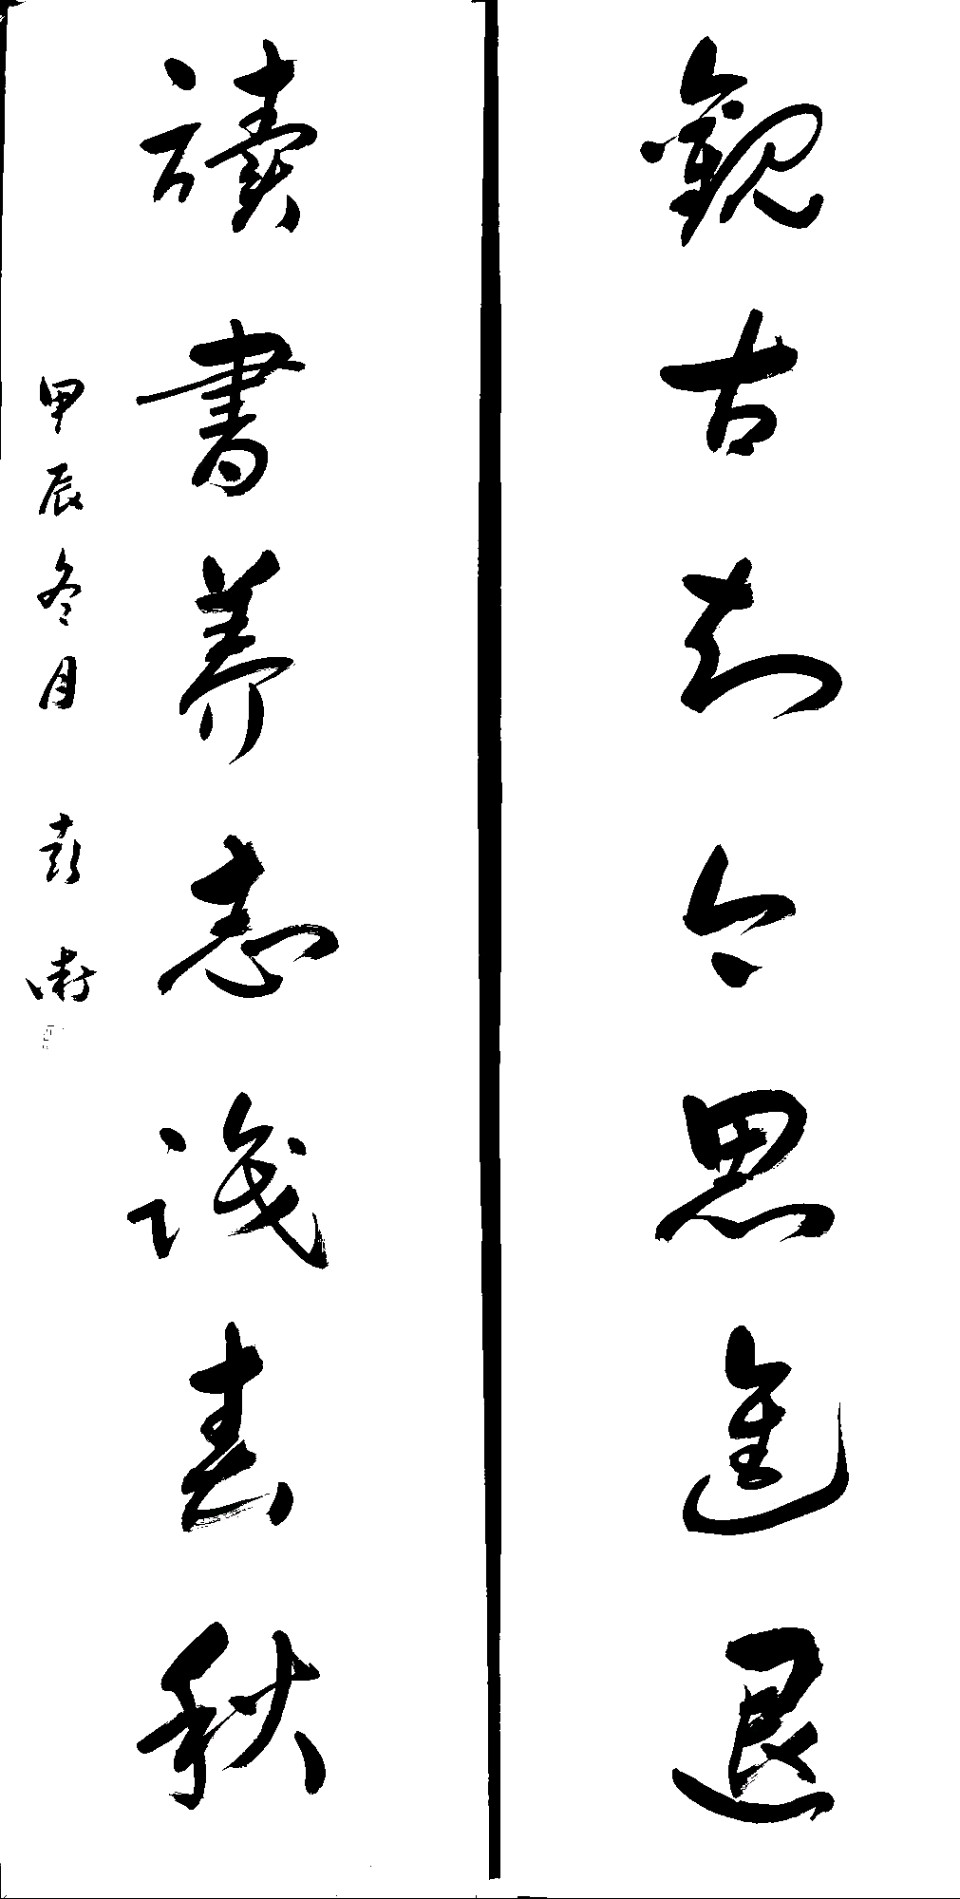 觀古知今思進退
讀書養志識春秋
甲辰冬月 彭衛